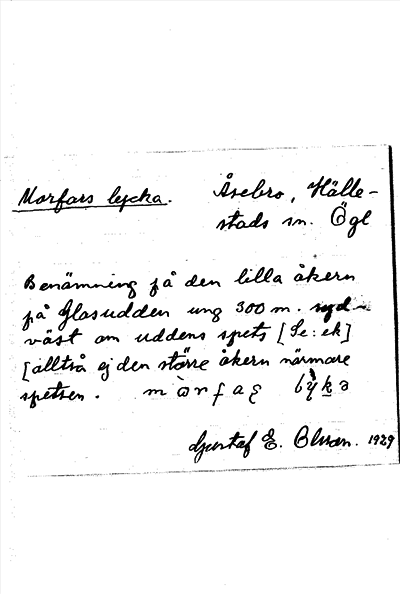 Morfars lycka.
Åsebro, Hälle-
stads sn. Ögl
Benämning på den lilla åkern
på Glasudden ung 300 m. syd-
väst om uddens spets [Se: ek]
[alltså ej den större åkern närmare
spetsen.
Gustaf E. Olsson. 1929